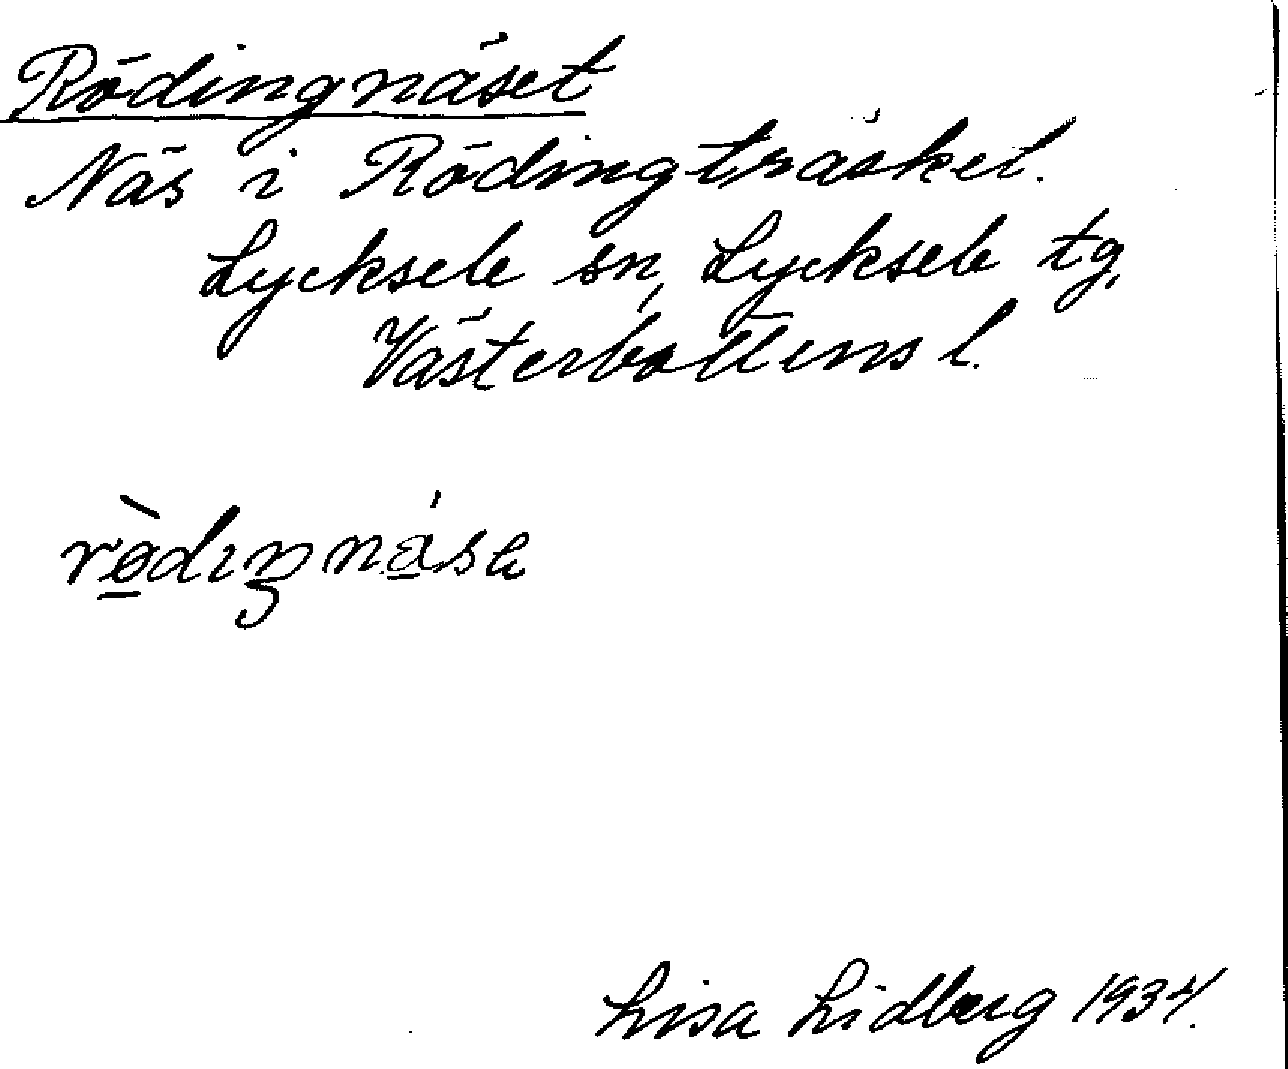 Rödingnäset
Näs i Rödingträsket.
Lycksele sn, Lycksele tg,
Västerbottens l.
rö̀diŋnásə
Lisa Lidberg 1934.